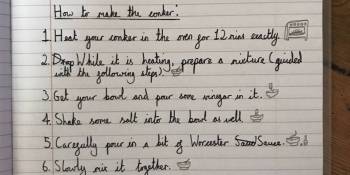 How to make the conker:
1. Heat your conker in the oven for 12 mins exactly.
2. Drop While it is heating, prepare a mixture (guided
with the following steps).
3. Get your bowl and pour some vinegar in it.
4. Shake some salt into the bowl as well
5. Carefully pour in a bit of Worcester Sauce.
6. Slowly mix it together.